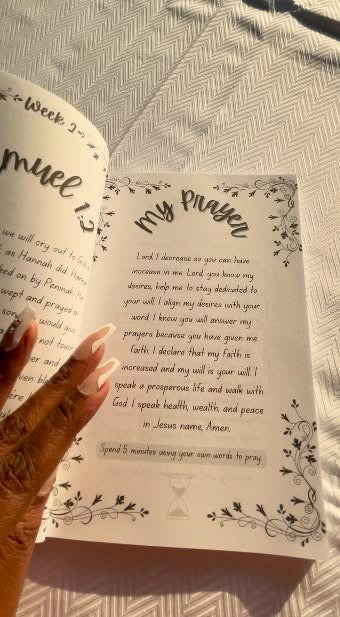 Week 2
muel 1:2
we will cry out to God
as Hannah did. Hannah
ked on by Peninnah.
wept and prayed a
son
would give
not touch
er and
ven
My Prayer
Lord, I decrease so you can have
increase in me. Lord, you know my
desires, help me to stay dedicated to
your will. I align my desires with your
word. I know you will answer my
prayers because you have given me
faith. I declare that my faith is
increased and my will is your will. I
speak a prosperous life and walk with
God. I speak health, wealth, and peace
in Jesus name, Amen.
Spend 5 minutes using your own words to pray.